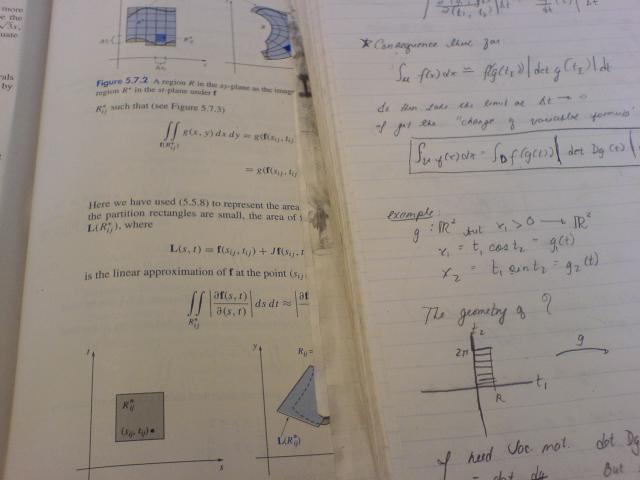 more
e the
√3x,
uate
rals
by
Figure 5.7.2 A region R in the xy-plane as the image
region R* in the st-plane under f
R*ij such that (see Figure 5.7.3)
∬f(R*ij) g(x, y) dx dy ≈ g(f(sij, tij
= g(f(sij, tij
Here we have used (5.5.8) to represent the area
the partition rectangles are small, the area of
L(R*ij), where
L(s, t) = f(sij, tij) + Jf(sij, t
is the linear approximation of f at the point (sij,
∬R*ij |∂f(s, t)/∂(s, t)| ds dt ≈ |∂f
t
R*ij
(sij, tij)
s
y
Rij =
L(R*ij)
* Consequence thus far
f(x) dx ≃ f(g(t2)) | det g(t2) | dt
then take the limit as Δt → 0
I get the "change of variable formula"
f(x) dx = ∫D f(g(t)) | det Dg(t) |
example:
g : ℝ² but x1 > 0 → ℝ²
x1 = t1 cos t2 = g1(t)
x2 = t1 sin t2 = g2(t)
The geometry of ?
t2
2π
g
R
t1
I need Joc. mat. det Dg
But